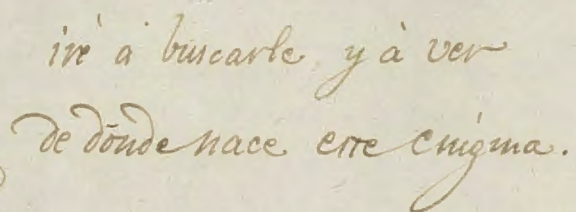 iré à buscarle, y à ver
de dōnde nace este enigma.